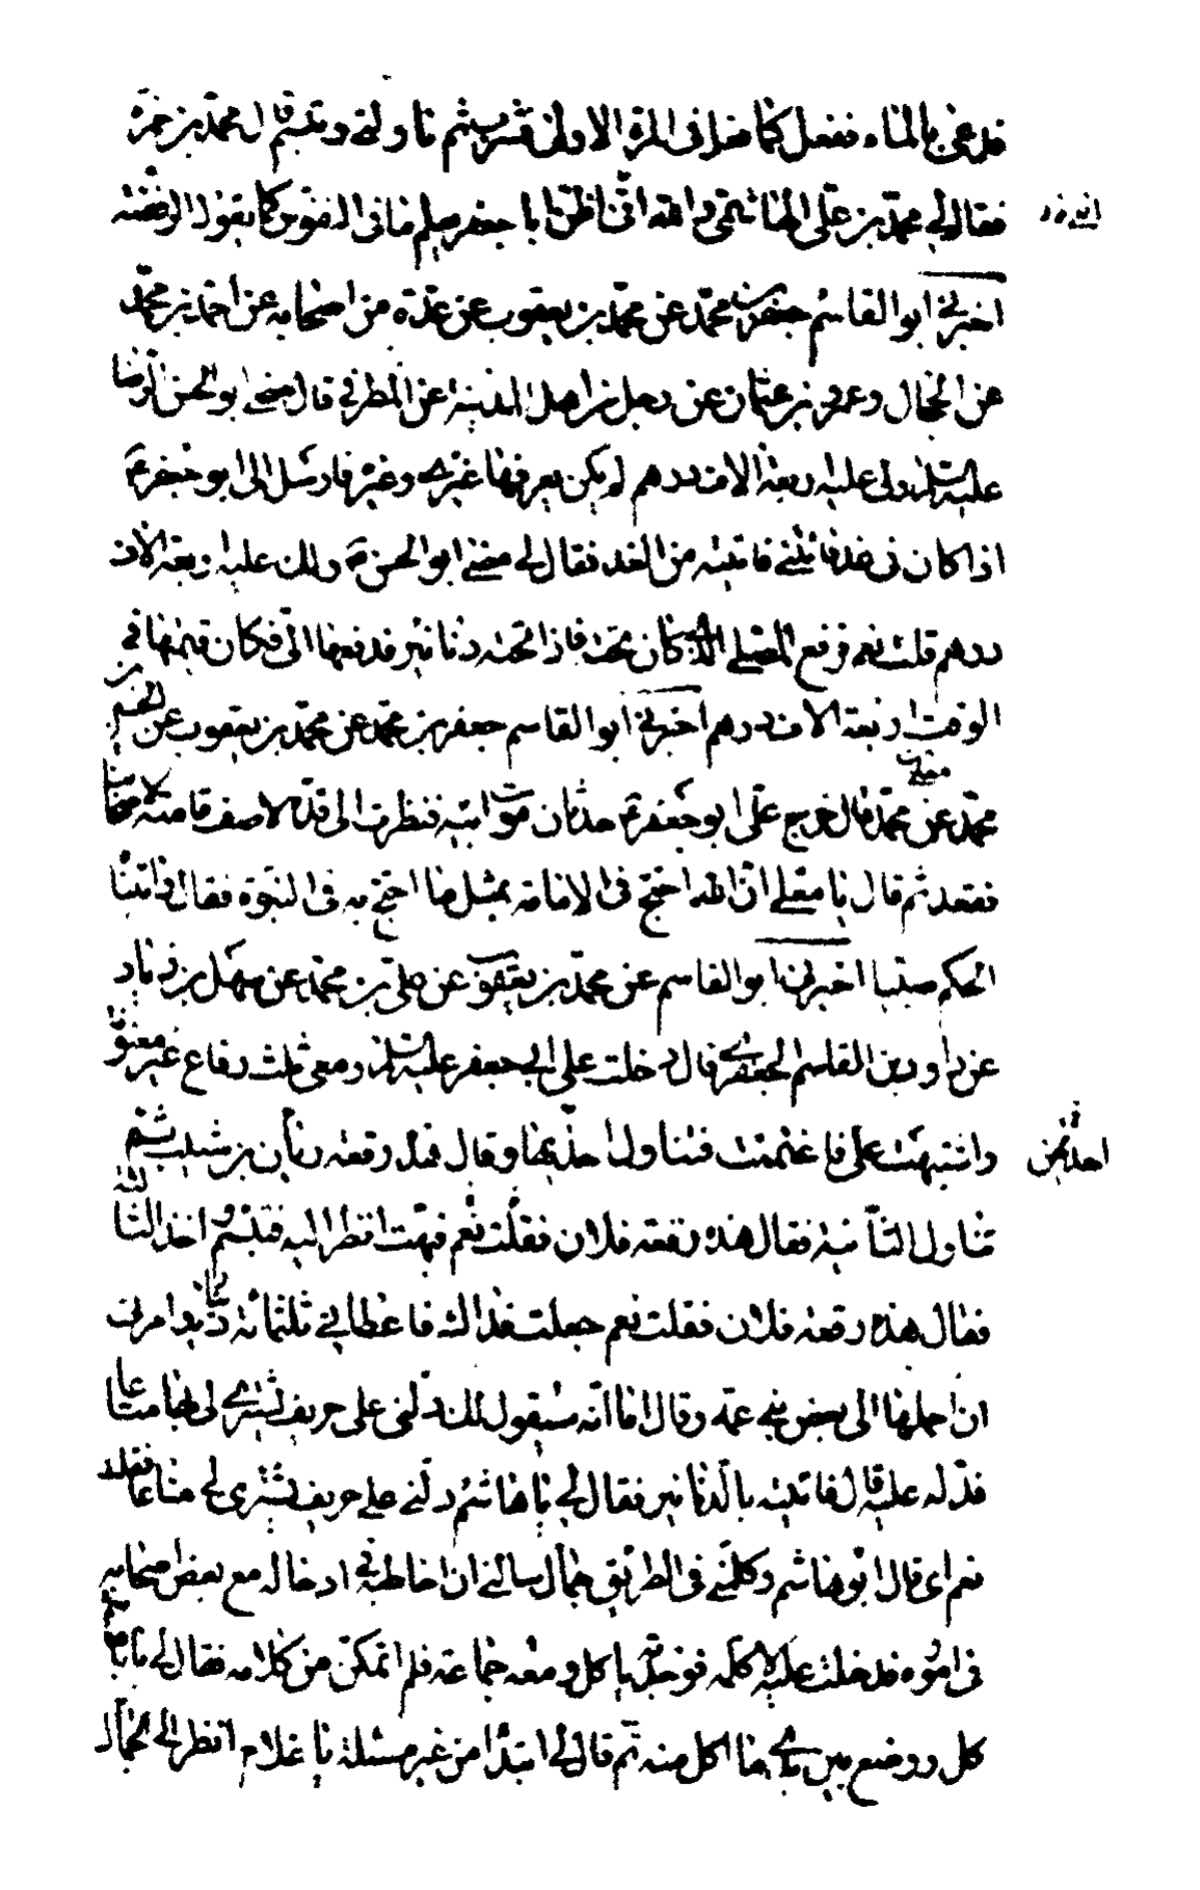 فدعى بالماء ففعل كما فعل فى المرة الاولى فشرب ثم ناولنى وتبسم قال محمد بن حمزة
فقال لى محمد بن على الهاشمى والله انى اظن ابا جعفر يعلم ما فى النفوس كما يقول الرافضة
اخبرنى ابو القاسم جعفر بن محمد عن محمد بن يعقوب عن عدة من اصحابه عن احمد بن محمد
عن الحجال وعمرو بن عثمان عن رجل من اهل المدينة عن المطرفى قال مضى ابو الحسن الرضا
عليه السلم ولى عليه اربعة الاف درهم لم يكن يعرفها غيرى وغيره فارسل الى ابو جعفر ع
اذا كان فى غد فائتنى فاتيته من الغد فقال لى مضى ابو الحسن ع ولك عليه اربعة الاف
درهم قلت نعم فرفع المصلى الذى كان تحته فاذا تحته دنانير فدفعها الى فكان قيمتها فى
الوقت اربعة الاف درهم اخبرنى ابو القاسم جعفر بن محمد عن محمد بن يعقوب عن الحسين بن
محمد عن معلى بن محمد قال خرج على ابو جعفر ع حدثان موت ابيه فنظرت الى قده لاصف قامته لاصحابنا
فقعد ثم قال يا معلى ان الله احتج فى الامامة بمثل ما احتج به فى النبوة فقال واتيناه
الحكم صبيا اخبرنى ابو القاسم عن محمد بن يعقوب عن على بن محمد عن سهل بن زياد
عن داود بن القاسم الجعفرى قال دخلت على ابى جعفر عليه السلم ومعى ثلث رقاع غير معنونة
واشتبهت على فاغتممت فتناول احديهن وقال هذه رقعة ريان بن شبيب ثم
تناول الثانية فقال هذه رقعة فلان فقلت نعم فبهت انظر اليه فتبسم واخذ الثالثة
فقال هذه رقعة فلان فقلت نعم جعلت فداك فاعطانى ثلثمائة دينار وامرنى
ان احملها الى بعض بنى عمه وقال اما انه سيقول لك دلنى على حريف يشترى لى بها متاعا
فدله عليه قال فاتيته بالدنانير فقال لى يا ابا هاشم دلنى على حريف يشترى لى متاعا فقلت
نعم اى قال ابو هاشم وكلمنى فى الطريق جمال سالنى ان اخاطبه فى ادخاله مع بعض اصحابه
فى اموره فدخلت عليه لاكلمه فوجدته ياكل ومعه جماعة فلم اتمكن من كلامه فقال لى يا ابا هاشم
كل ووضع بين يدى ما اكل منه ثم قال لى ابتداء من غير مسئلة يا غلام انظر الى الجمال
احديهن